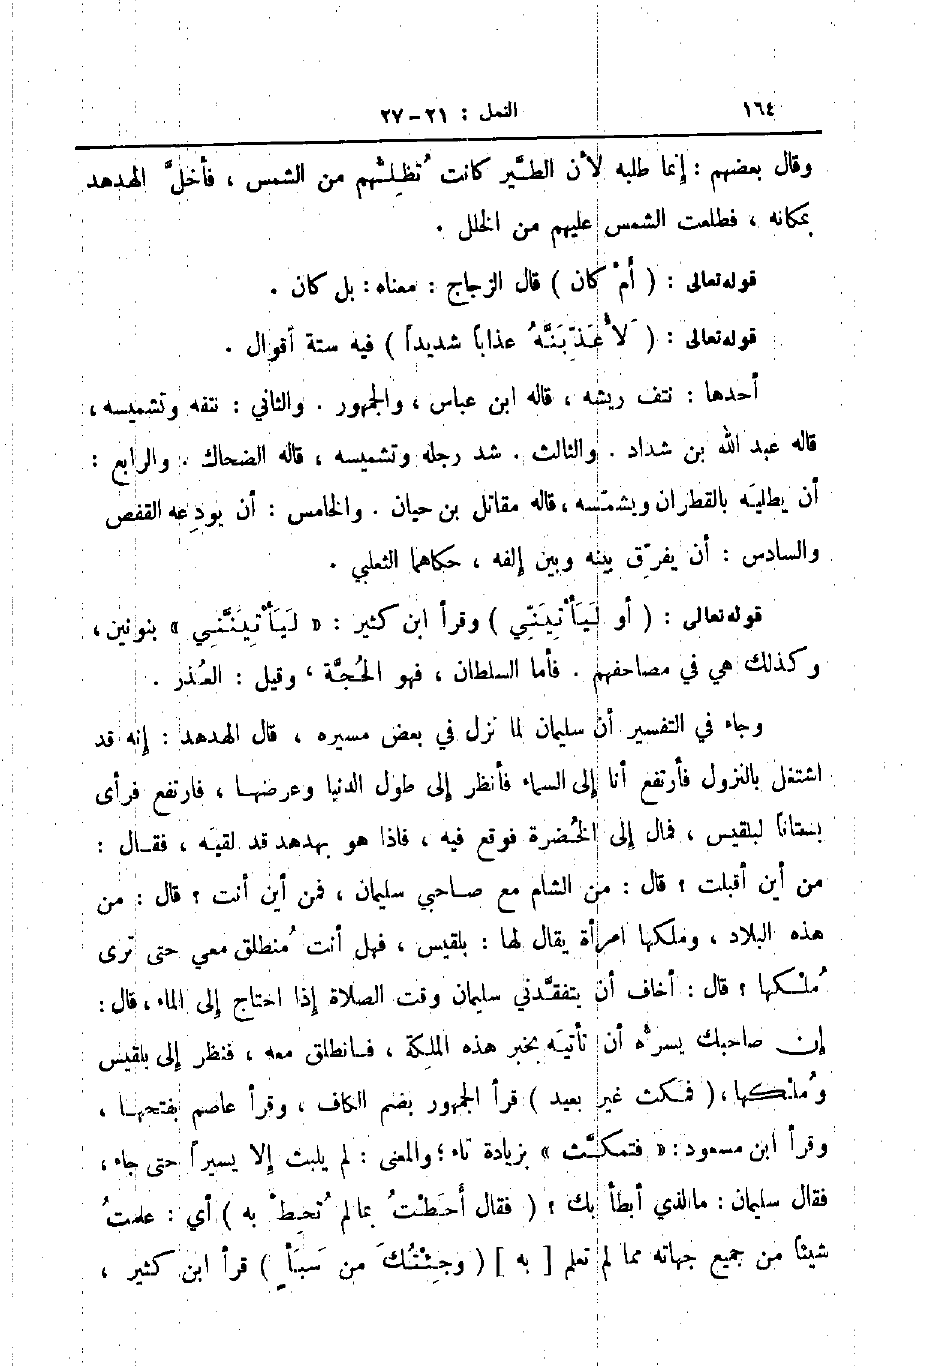 ١٦٤ النمل : ٢١ - ٢٧
وقال بعضهم : إنما طلبه لأن الطَّير كانت تُظِلُّهم من الشمس ، فأخلَّ الهدهد
بمكانه ، فطلعت الشمس عليهم من الخلل .
قوله تعالى : ( أمْ كان ) قال الزجاج : معناه : بل كان .
قوله تعالى : ( لَأُعَذِّبَنَّهُ عذاباً شديداً ) فيه ستة أقوال .
أحدها : نتف ريشه ، قاله ابن عباس ، والجمهور . والثاني : نتفه وتشميسه ،
قاله عبد الله بن شداد . والثالث . شد رجله وتشميسه ، قاله الضحاك . والرابع :
أن يطليَه بالقطران ويشمّسه ، قاله مقاتل بن حيان . والخامس : أن يودِعه القفص
والسادس : أن يفرِّق بينه وبين إلفه ، حكاهما الثعلبي .
قوله تعالى : ( أو لَيَأْتِيَنّي ) وقرأ ابن كثير : « لَيَأْتِيَنَّنِي » بنونين ،
وكذلك هي في مصاحفهم . فأما السلطان ، فهو الحُجَّة ، وقيل : العُذر .
وجاء في التفسير أن سليمان لما نزل في بعض مسيره ، قال الهدهد : إنه قد
اشتغل بالنزول فأرتفع أنا إلى السماء فأنظر إلى طول الدنيا وعرضها ، فارتفع فرأى
بستاناً لبلقيس ، فمال إلى الخُضرة فوقع فيه ، فاذا هو بهدهد قد لقيَه ، فقال :
من أين أقبلت ؟ قال : من الشام مع صاحبي سليمان ، فمن أين أنت ؟ قال : من
هذه البلاد ، وملكها امرأة يقال لها : بلقيس ، فهل أنت مُنطلق معي حتى ترى
مُلْكها ؟ قال : أخاف أن يتفقَّدني سليمان وقت الصلاة إذا احتاج إلى الماء ، قال :
إن صاحبك يسرُّه أن تأتيَه بخبر هذه الملكة ، فانطلق معه ، فنظر إلى بلقيس
ومُلْكها ، ( فمكث غير بعيد ) قرأ الجمهور بضم الكاف ، وقرأ عاصم بفتحها ،
وقرأ ابن مسعود : « فتمكَّث » بزيادة تاء ؛ والمعنى : لم يلبث إلا يسيراً حتى جاء ،
فقال سليمان : ما الذي أبطأ بك ؟ ( فقال أَحَطْتُ بما لم تُحِطْ به ) أي : علمتُ
شيئاً من جميع جهاته مما لم تعلم [ به ] ( وجِئْتُكَ من سَبَأٍ ) قرأ ابن كثير ،